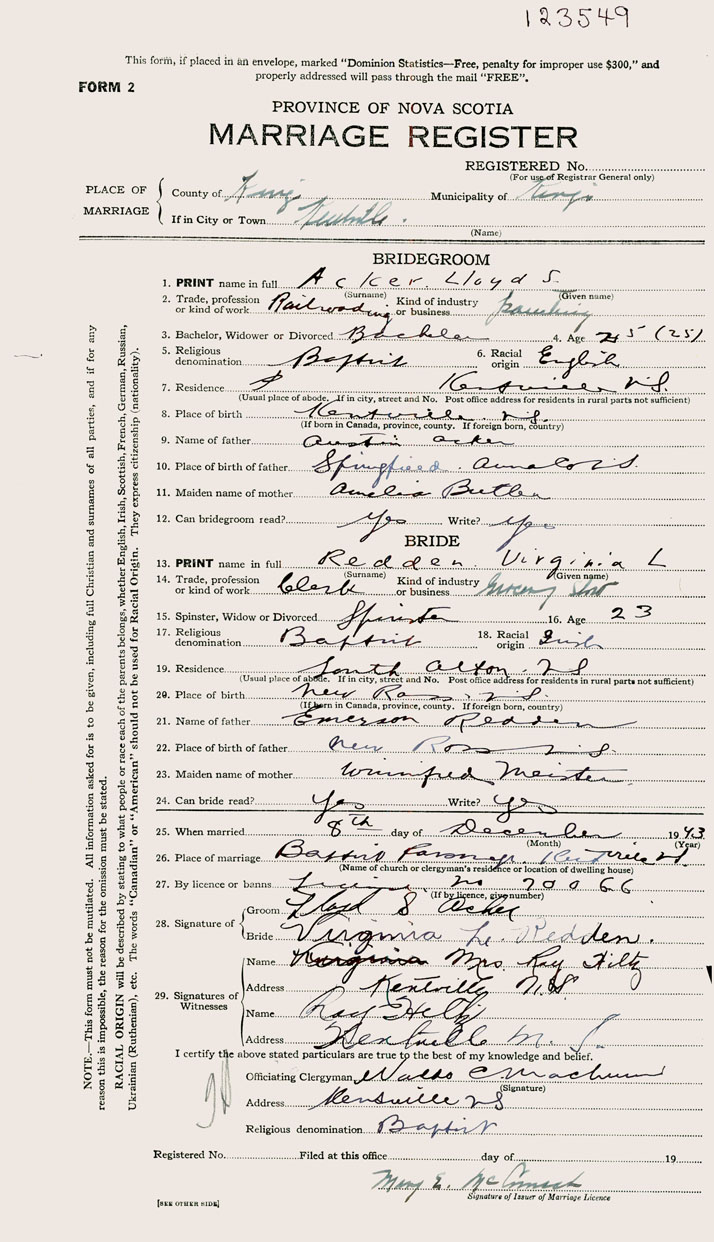 123549
This form, if placed in an envelope, marked "Dominion Statistics—Free, penalty for improper use $300," and
properly addressed will pass through the mail "FREE".
FORM 2
PROVINCE OF NOVA SCOTIA
MARRIAGE REGISTER
REGISTERED No.
(For use of Registrar General only)
PLACE OF MARRIAGE
County of Kings Municipality of Kings
If in City or Town Kentville.
(Name)
BRIDEGROOM
1. PRINT name in full Acker. Lloyd S.
(Surname) (Given name)
2. Trade, profession or kind of work Railroading Kind of industry or business
3. Bachelor, Widower or Divorced Bachelor 4. Age 25 (25)
5. Religious denomination Baptist 6. Racial origin English
7. Residence Kentville N.S.
(Usual place of abode. If in city, street and No. Post office address for residents in rural parts not sufficient)
8. Place of birth Kentville. N.S.
(If born in Canada, province, county. If foreign born, country)
9. Name of father Austin Acker
10. Place of birth of father Springfield. Anna Co N.S.
11. Maiden name of mother Amelia Butler
12. Can bridegroom read? Yes Write? Yes
BRIDE
13. PRINT name in full Redden. Virginia L
(Surname) (Given name)
14. Trade, profession or kind of work Clerk Kind of industry or business Grocery Store
15. Spinster, Widow or Divorced Spinster 16. Age 23
17. Religious denomination Baptist 18. Racial origin Irish
19. Residence South Alton. N.S
(Usual place of abode. If in city, street and No. Post office address for residents in rural parts not sufficient)
20. Place of birth New Ross. N.S.
(If born in Canada, province, county. If foreign born, country)
21. Name of father Emerson Redden
22. Place of birth of father New Ross N.S.
23. Maiden name of mother Winnifred Meister
24. Can bride read? Yes Write? Yes
25. When married 8th day of December 1943
(Month) (Year)
26. Place of marriage Baptist Parsonage. Kentville N.S.
(Name of church or clergyman's residence or location of dwelling house)
27. By licence or banns License no 20066
(If by licence, give number)
28. Signature of
Groom Lloyd S Acker
Bride Virginia L. Redden.
29. Signatures of Witnesses
Name Virginia Mrs Ray Hiltz
Address Kentville N.S
Name Ray Hiltz
Address Kentville N. S.
I certify the above stated particulars are true to the best of my knowledge and belief.
Officiating Clergyman Waldo C Machum
(Signature)
Address Kentville N S
Religious denomination Baptist
Registered No. Filed at this office day of 19
Mary E. McCormack
Signature of Issuer of Marriage Licence
[SEE OTHER SIDE]
NOTE.—This form must not be mutilated. All information asked for is to be given, including full Christian and surnames of all parties, and if for any
reason this is impossible, the reason for the omission must be stated.
RACIAL ORIGIN will be described by stating to what people or race each of the parents belongs, whether English, Irish, Scottish, French, German, Russian,
Ukrainian (Ruthenian), etc. The words "Canadian" or "American" should not be used for Racial Origin. They express citizenship (nationality).